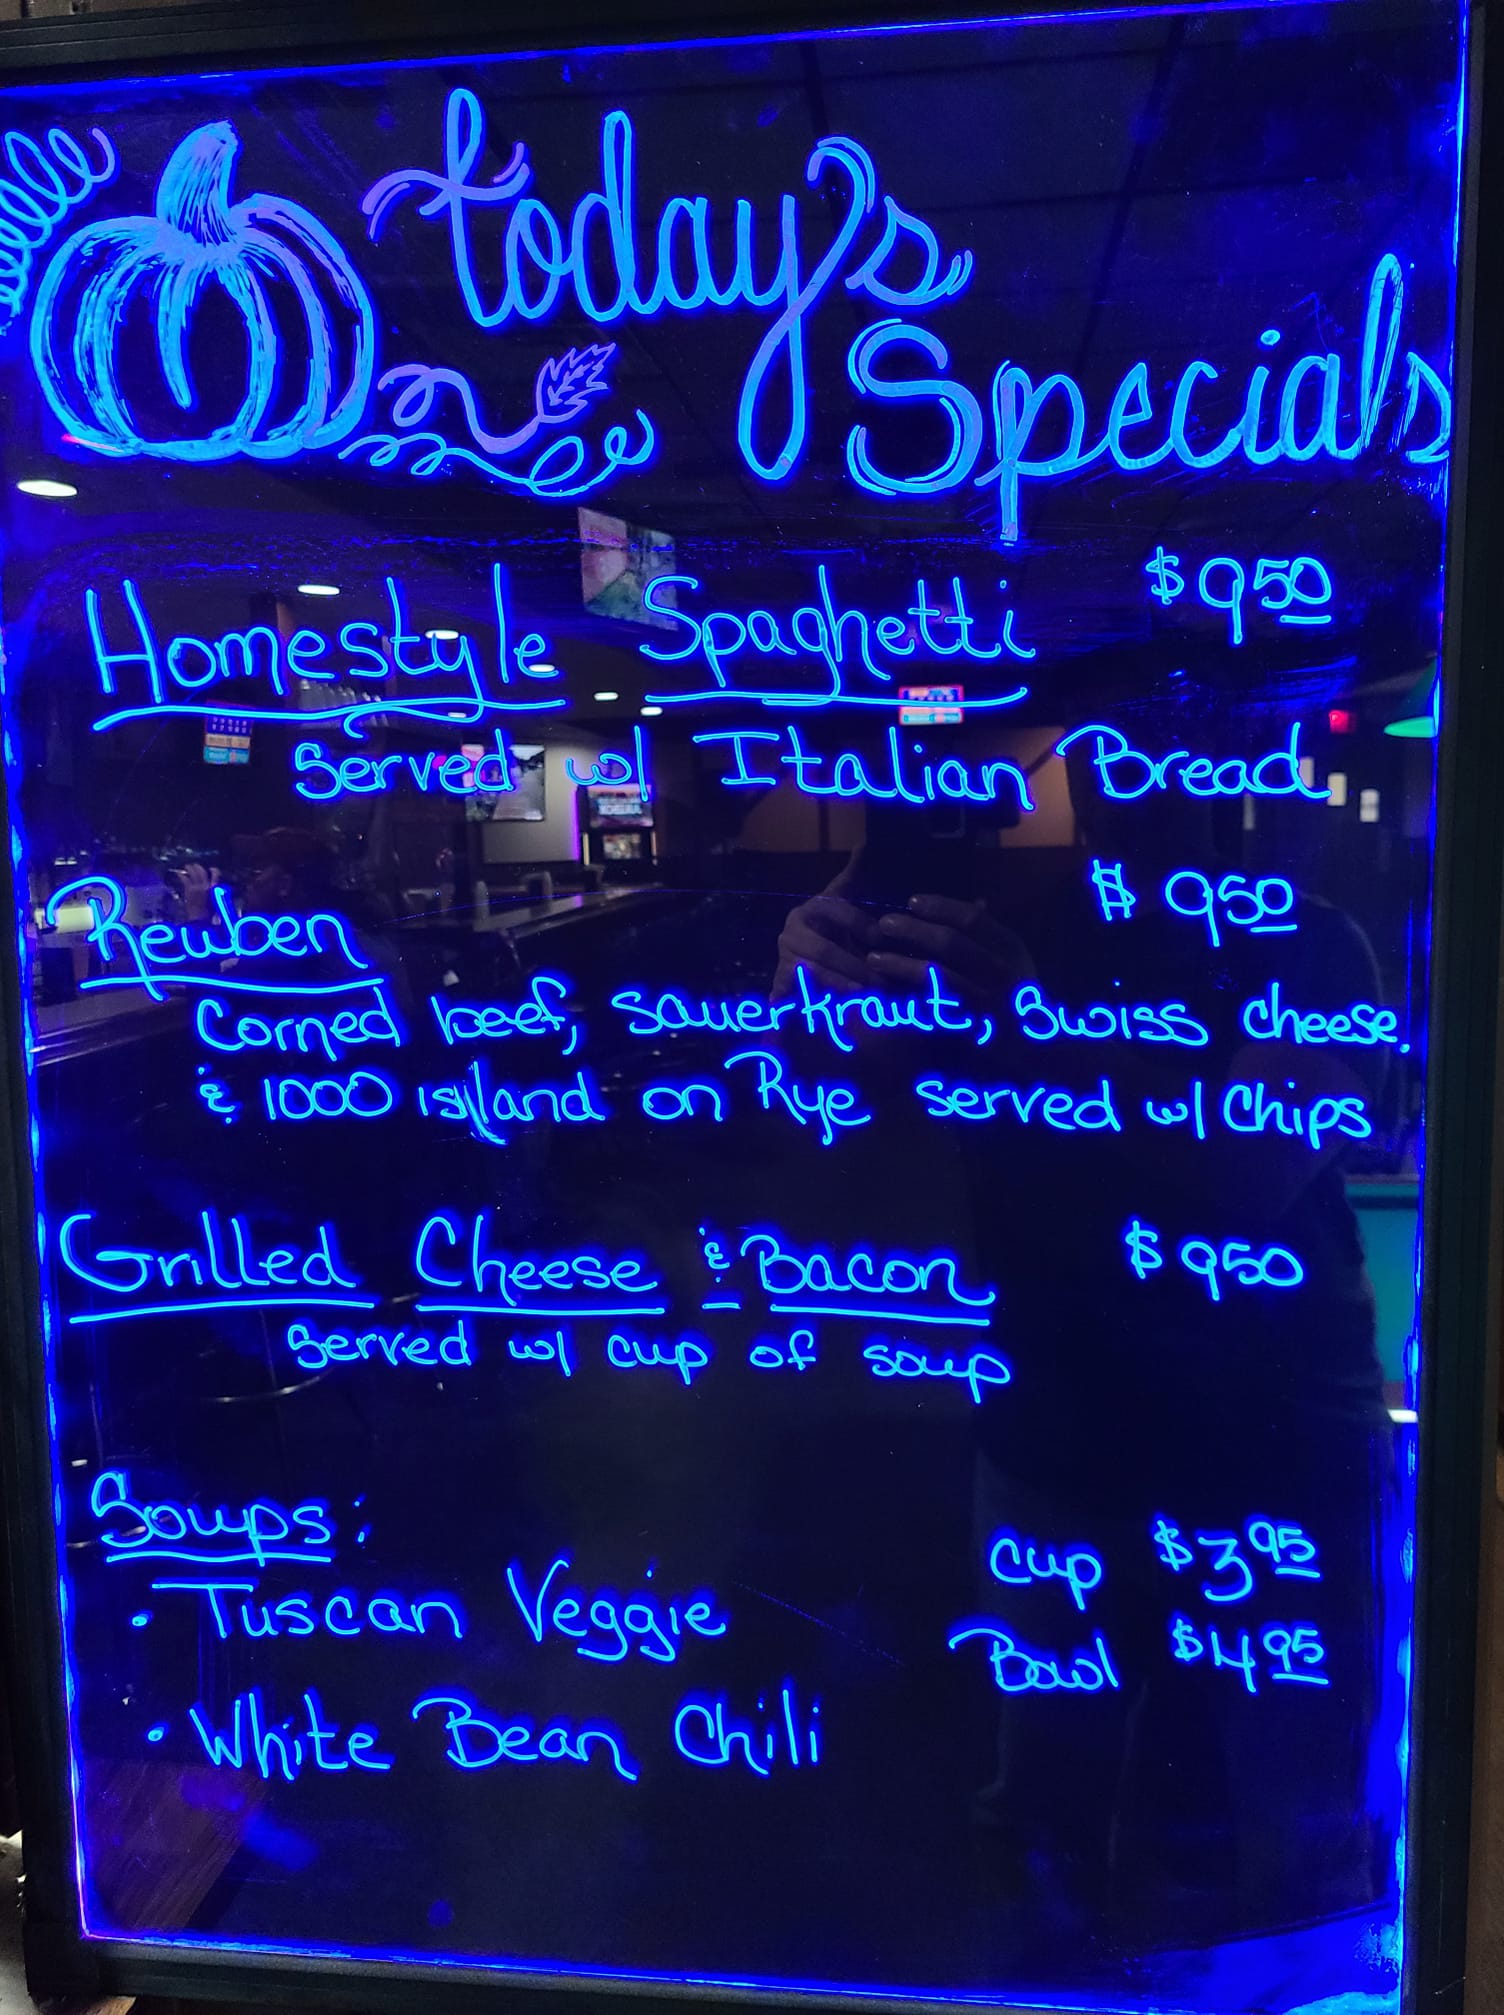 today's
Specials
Homestyle Spaghetti $9.50
Served w/ Italian Bread
Reuben $9.50
Corned beef, sauerkraut, Swiss cheese.
& 1000 island on Rye served w/ Chips
Grilled Cheese & Bacon $950
Served w/ cup of soup
Soups:
• Tuscan Veggie
cup $3.95
Bowl $4.95
• White Bean Chili